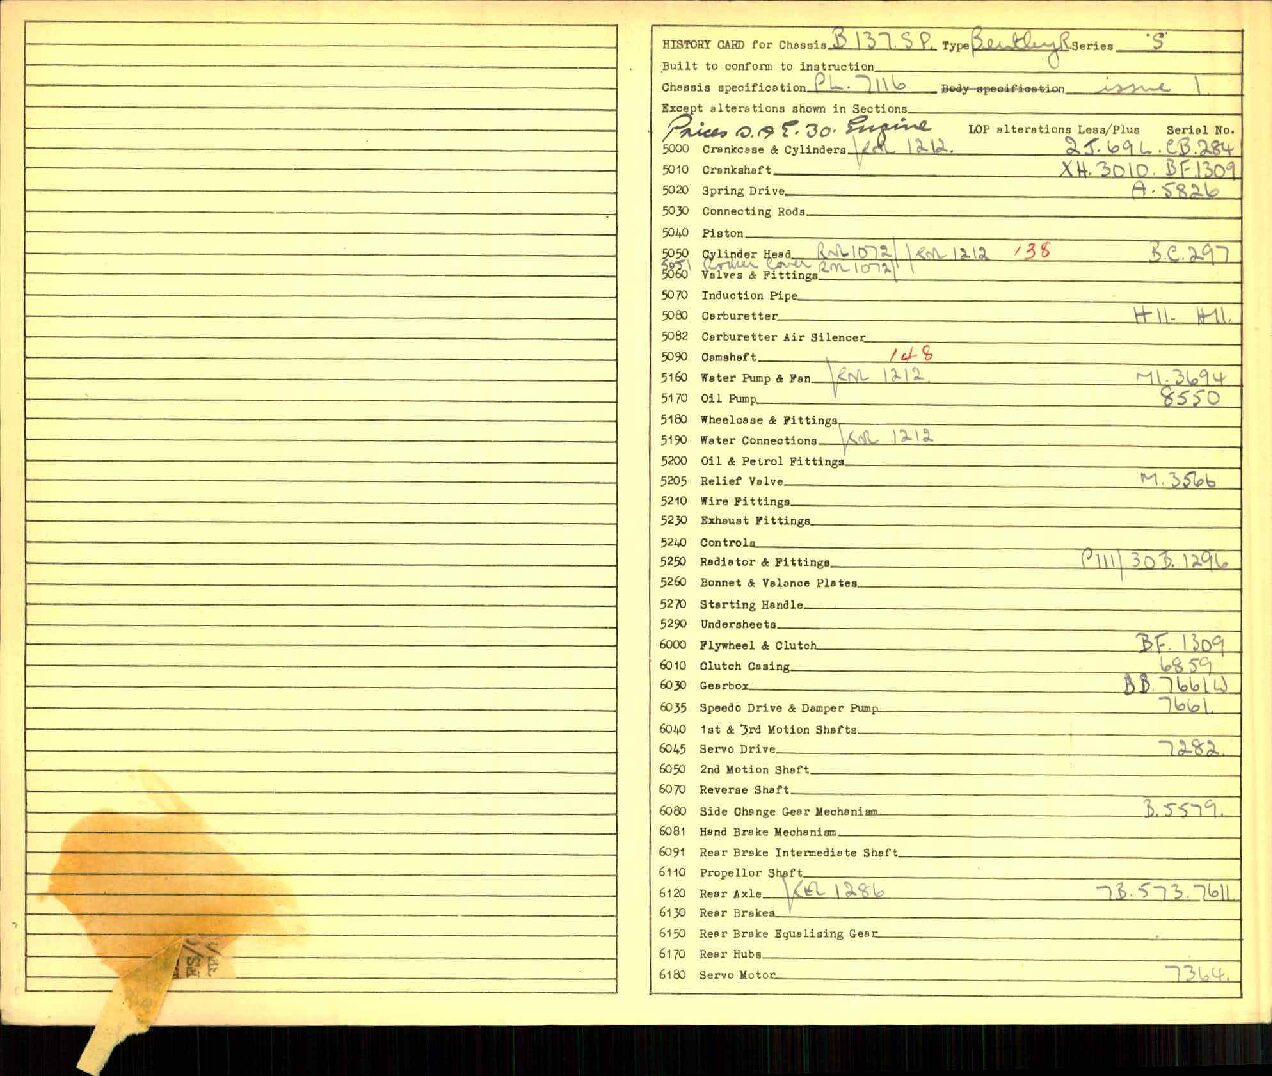 HISTORY CARD for Chassis B 137 SP. Type Bentley R Series 'S'
Built to conform to instruction
Chassis specification PL. 7116 Body specification issue 1.
Except alterations shown in Sections
Engine LOP alterations Less/Plus Serial No.
5000 Crankcase & Cylinders 1212. 2J.69L.CB.284
5010 Crankshaft XH.3010. BF1309
5020 Spring Drive A.5826
5030 Connecting Rods
5040 Piston
5050 Cylinder Head 1072 1212 138 B.C.297
5051 Rocker Cover 1072
5060 Valves & Fittings
5070 Induction Pipe
5080 Carburetter H11- H11.
5082 Carburetter Air Silencer
5090 Camshaft 148
5160 Water Pump & Fan 1212. M1.3694
5170 Oil Pump 8550
5180 Wheelcase & Fittings
5190 Water Connections 1212
5200 Oil & Petrol Fittings
5205 Relief Valve M.3566
5210 Wire Fittings
5230 Exhaust Fittings
5240 Controls
5250 Radiator & Fittings P111/30B.1296
5260 Bonnet & Valance Plates
5270 Starting Handle
5290 Undersheets
6000 Flywheel & Clutch BF. 1309
6010 Clutch Casing 6859
6030 Gearbox BB.7661W
6035 Speedo Drive & Damper Pump 7661.
6040 1st & 3rd Motion Shafts
6045 Servo Drive 7282.
6050 2nd Motion Shaft
6070 Reverse Shaft
6080 Side Change Gear Mechanism B.5579.
6081 Hand Brake Mechanism
6091 Rear Brake Intermediate Shaft
6110 Propellor Shaft
6120 Rear Axle 1286 7B.573.7611.
6130 Rear Brakes
6150 Rear Brake Equalising Gear
6170 Rear Hubs
6180 Servo Motor 7364.